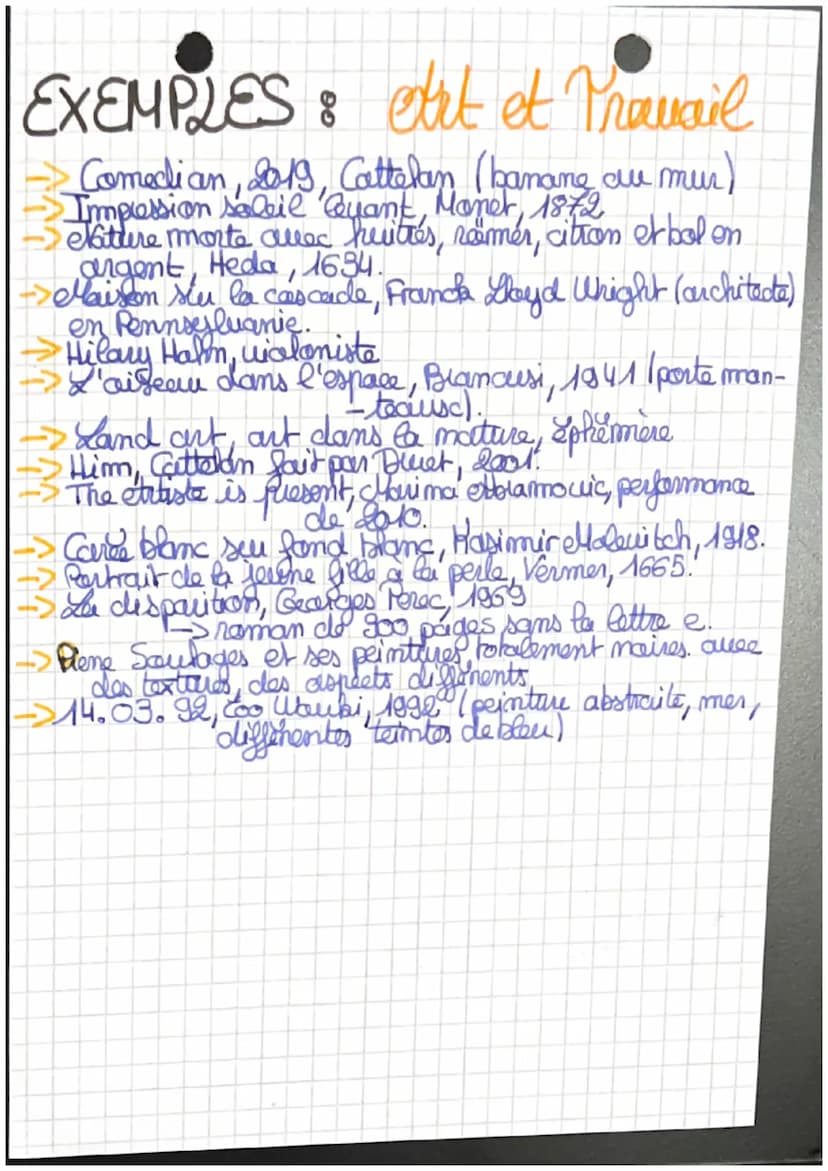 EXEMPLES : Art et Travail
→ Comedian, 2019, Cattelan (banane au mur)
→ Impression soleil levant, Monet, 1872
→ Nature morte avec huitres, römer, citron et bol en
argent, Heda, 1634.
→ Maison sur la cascade, Franck Lloyd Wright (architecte)
en Pennsylvanie.
→ Hilary Hahn, violoniste
→ L'oiseau dans l'espace, Brancusi, 1941 (porte man-
-teaux).
→ Land art, art dans la nature, éphémère
→ Him, Cattelan fait par Druet, 2001.
→ The artiste is present, Marina Abramovic, performance
de 2010.
→ Carré blanc sur fond blanc, Kasimir Malevitch, 1918.
→ Portrait de la jeune fille à la perle, Vermer, 1665.
→ La disparition, Georges Perec, 1969
→ roman de 300 pages sans la lettre e.
→ Pierre Soulages et ses peintures totalement noires. avec
des textures, des aspects différents
→ 14.03.92, Zoo Wouki, 1992 (peinture abstraite, mer,
différentes teintes de bleu)